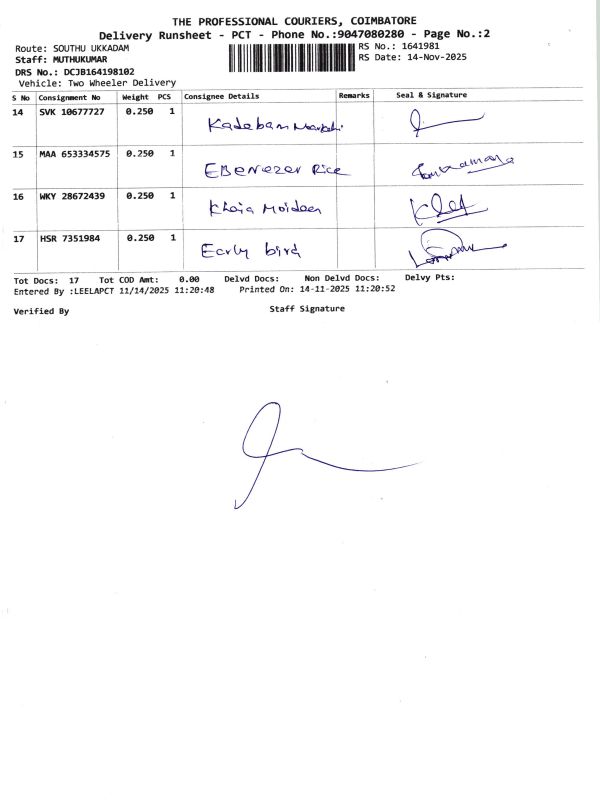 THE PROFESSIONAL COURIERS, COIMBATORE
Delivery Runsheet - PCT - Phone No.:9047080280 - Page No.:2
Route: SOUTHU UKKADAM
RS No.: 1641981
Staff: MUTHUKUMAR
RS Date: 14-Nov-2025
DRS No.: DCJB164198102
Vehicle: Two Wheeler Delivery
S No Consignment No Weight PCS Consignee Details Remarks Seal & Signature
14 SVK 10677727 0.250 1 Kadeban
15 MAA 653334575 0.250 1 EBenezer Rice
16 WKY 28672439 0.250 1 Khaja Moideen
17 HSR 7351984 0.250 1 Early bird
Tot Docs: 17 Tot COD Amt: 0.00 Delvd Docs: Non Delvd Docs: Delvy Pts:
Entered By :LEELAPCT 11/14/2025 11:20:48 Printed On: 14-11-2025 11:20:52
Verified By Staff Signature